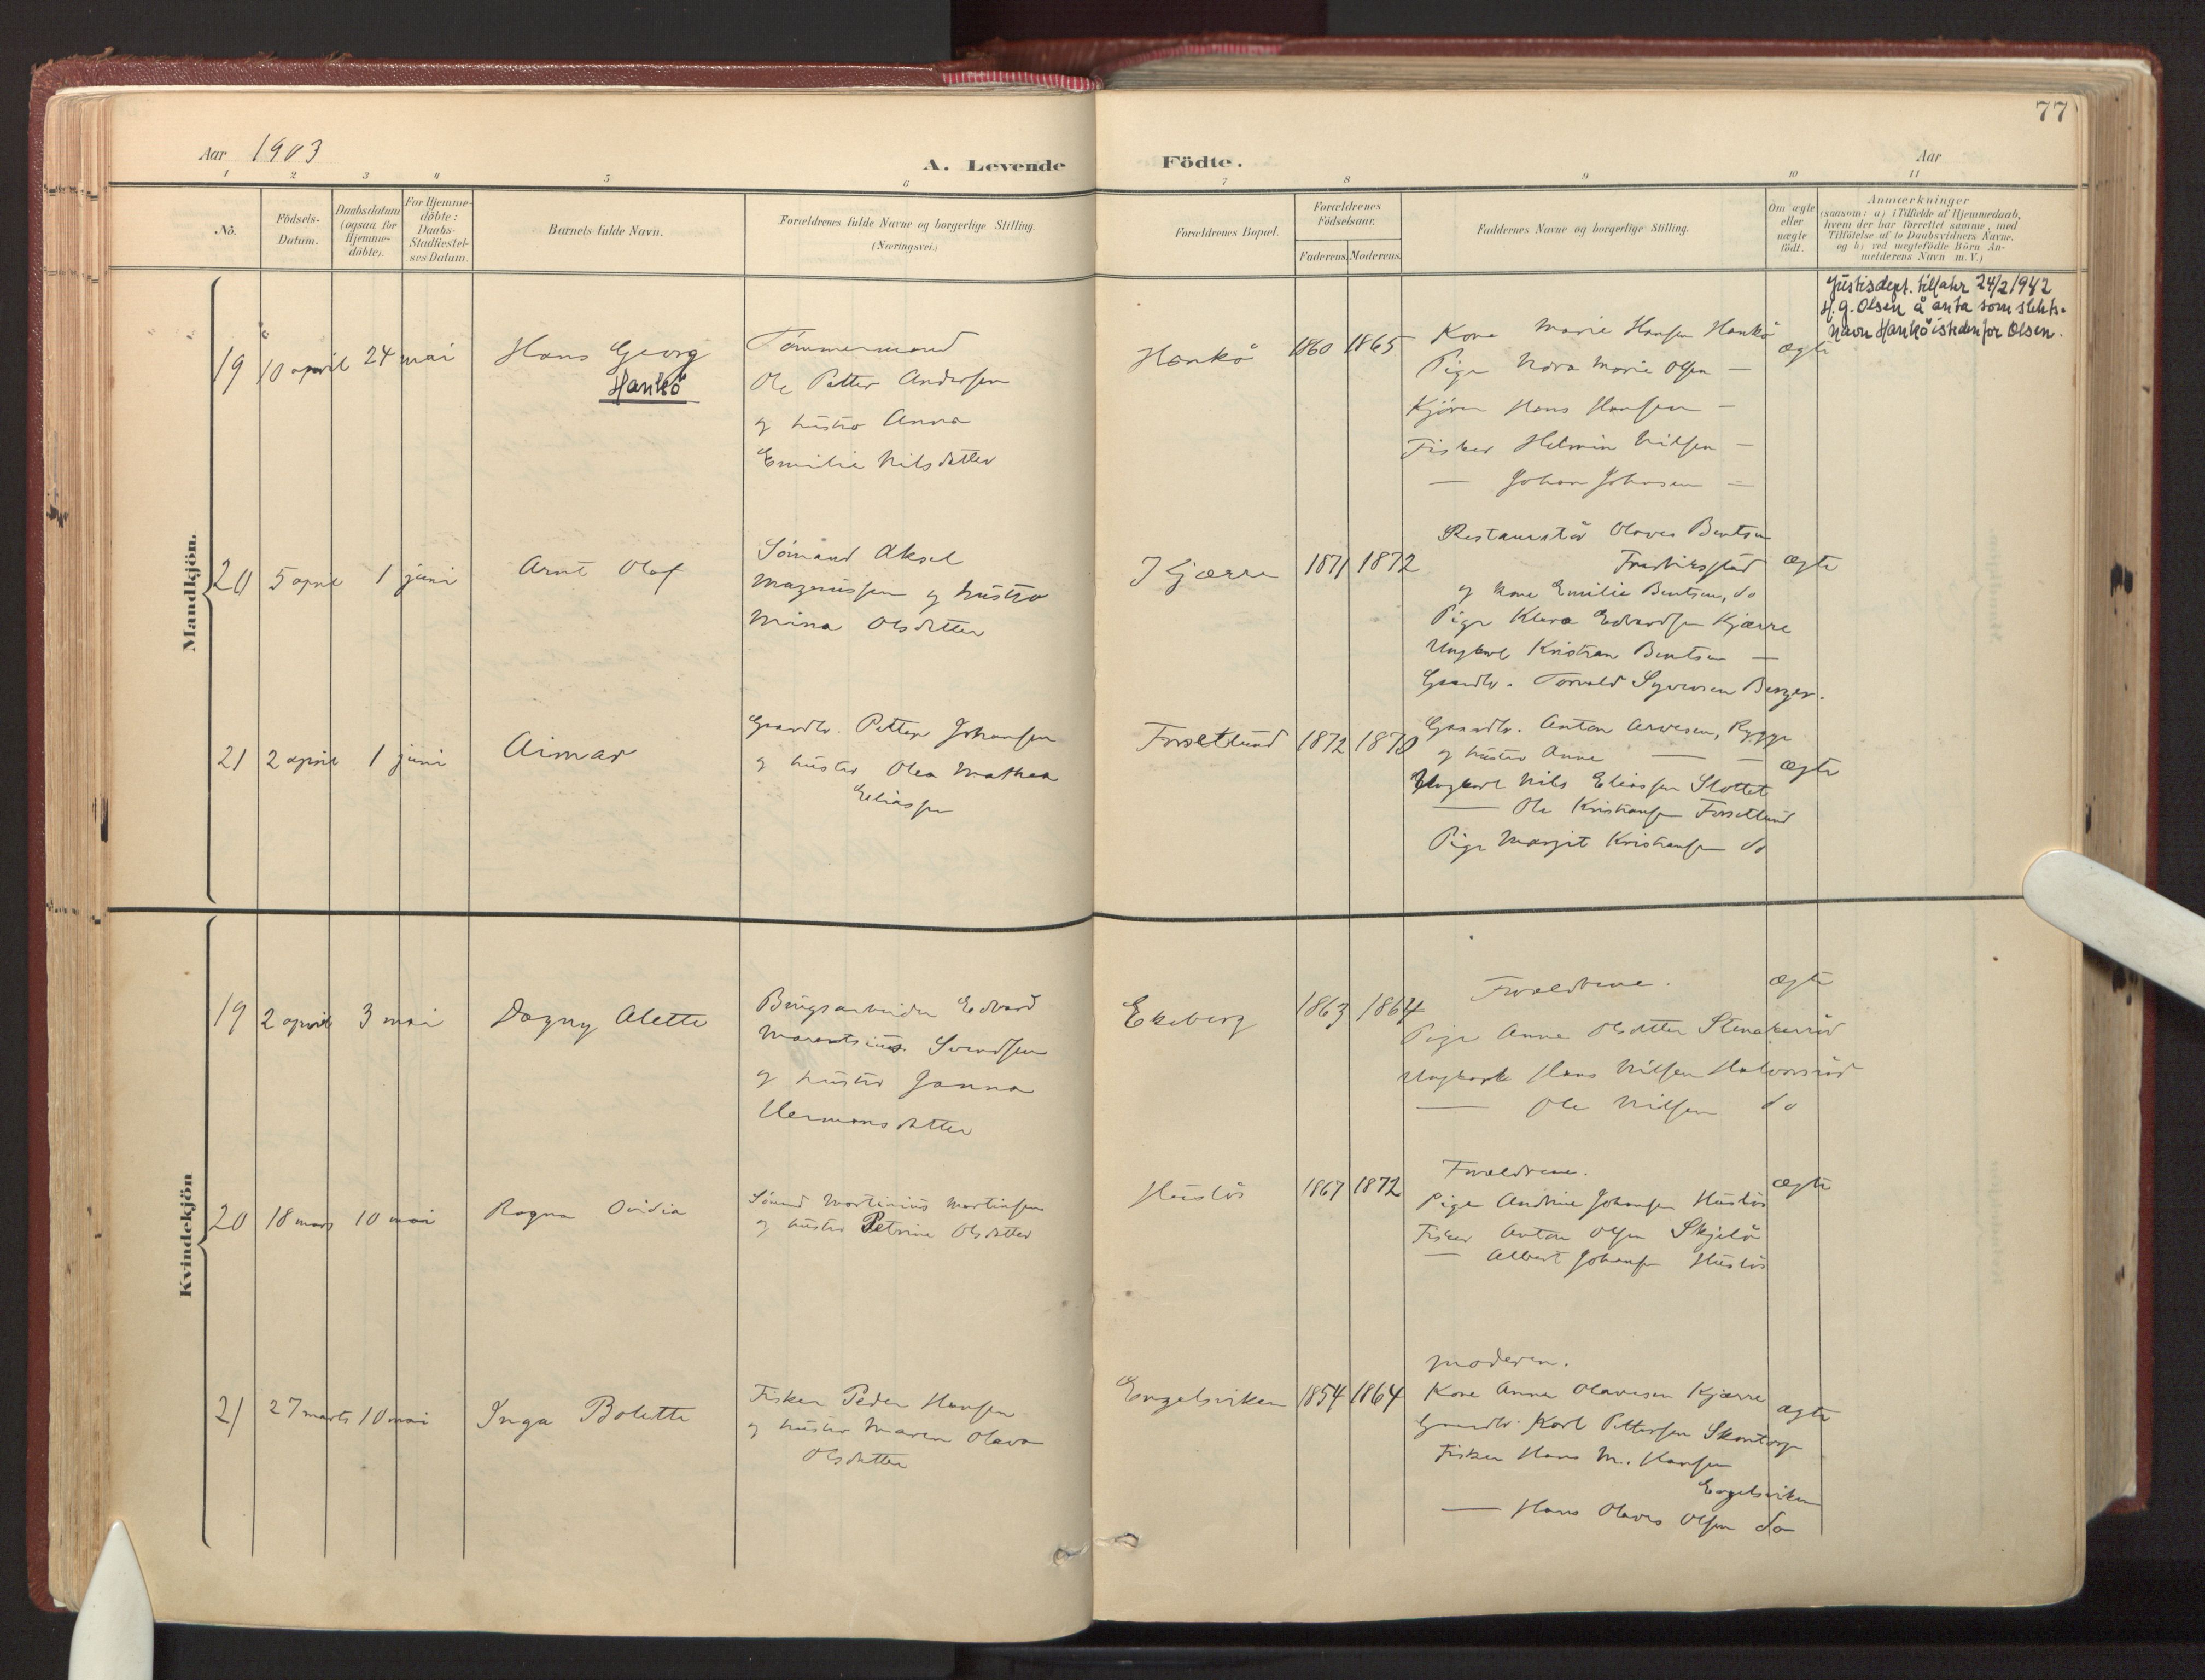 77
Aar 1903
A. Levende Födte.
Aar
1 2 3 4 5 6 7 8 9 10 11
No.
Födsels-
Datum.
Daabsdatum
(ogsaa for
Hjemme-
döbte).
For Hjemme-
döbte:
Daabs-
Stadfæstel-
ses Datum.
Barnets fulde Navn.
Forældrenes fulde Navne og borgerlige Stilling
(Næringsvei.)
Forældrenes Bopæl.
Forældrenes
Födselsaar.
Faderens. Moderens.
Faddernes Navne og borgerlige Stilling.
Om ægte
eller
uægte
födt.
Anmærkninger
(saasom: a) i Tilfælde af Hjemmedaab,
hvem der har forrettet samme, med
Tilföielse af to Daabsvidners Navne.
og b) ved uægtefödte Börn An-
melderens Navn m. V.)
Mandkjön.
19 10 april 24 mai
Hans Georg
Hankö
Tömmermand
Ole Petter Andersen
og hustro Anna
Emilie Nilsdatter
Hankö
1860 1865
Kone Marie Hansen Hankö
Pige Nora Marie Olsen —
Hans Hansen —
Fisker Helmin Nilsen —
— Johan Johnsen —
ægte
Justisdept. tillatir 24/2 1942
H. G. Olsen å anta som slekts-
navn Hankö istedenfor Olsen.
20 5 april 1 juni
Arnt Olaf
Sömand Aksel
Magnussen og hustro
Mina Olsdatter
Kjærre
1871 1872
Restauratör Olaves Bentsen
Fredriksstad
og kone Emilie Bentsen, do
Pige Klara Edvardsen Kjærre
Ungkarl Kristian Bentsen —
Gaardbr. Torvald Syversen Berger.
ægte
21 2 april 1 juni
Aimar
Gaardbr. Petter Johansen
og hustro Olea Mathea
Eliassen
Forsetlund
1872 1870
Gaardbr. Anton Arvesen, Rygge
og hustro Anne — —
Ungkarl Nils Eliassen Slottet
— Ole Kristiansen Forsetlund
Pige Margit Kristiansen do
ægte
Kvindekjön
19 2 april 3 mai
Dagny Alette
Brugsarbeider Edvard
Marentsius Svendsen
og hustro Janna
Hermansdatter
Ekeberg
1863 1864
Forældrene.
Pige Anna Olsdatter Stenakerröd
Ungkarl Hans Nilsen Halvorsröd
— Ole Nilsen do
ægte
20 18 mars 10 mai
Ragna Ovidia
Sömand Martinius Martinsen
og hustro Petrine Olsdatter
Huslös
1867 1872
Forældrene.
Pige Andrine Johansen Huslös
Fisker Anton Olsen Skjelö
— Albert Johansen Huslös
ægte
21 27 marts 10 mai
Inga Bolette
Fisker Peder Hansen
og hustro Maren Olava
Olsdatter
Engelsviken
1854 1864
Moderen.
Kone Anna Olavesen Kjærre
Gaardbr. Karl Pettersen Skontorp
Fisker Hans M. Hansen
Engelsviken
— Hans Olaves Olsen do
ægte